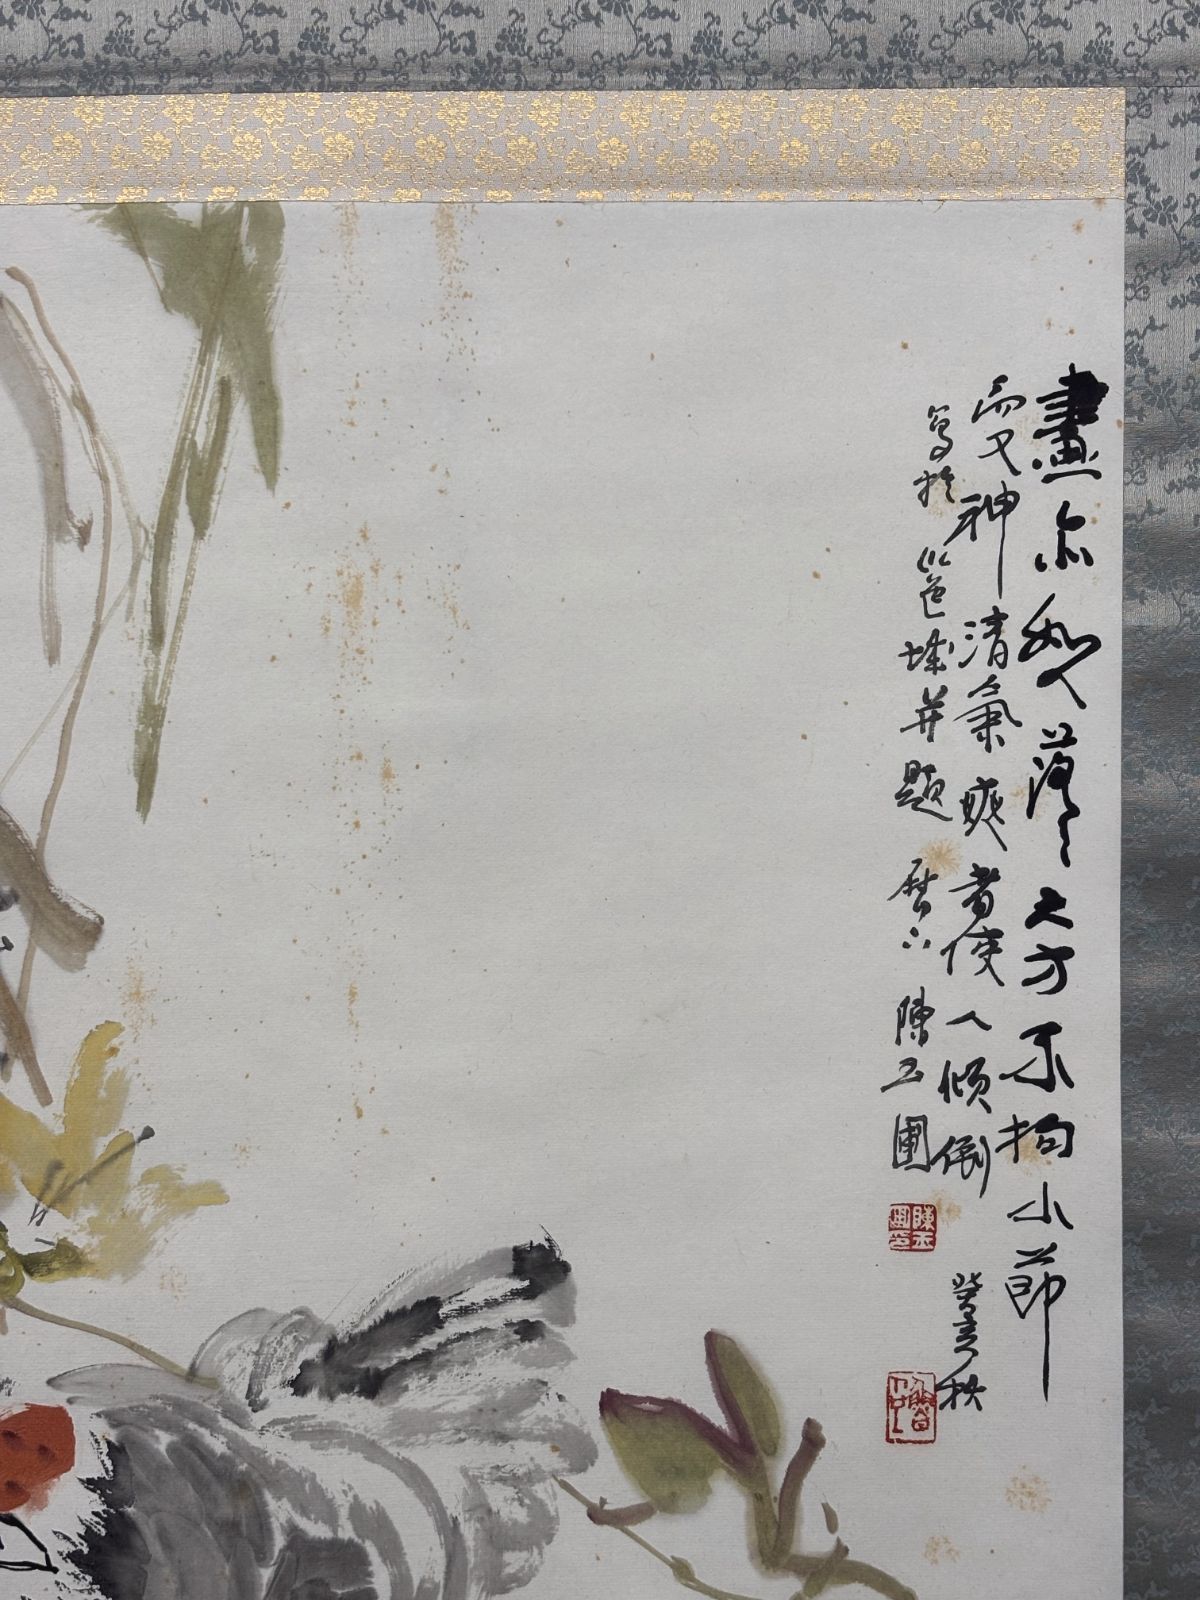 畫亦如人落落大方不拘小節
而又神清氣爽者使人傾倒
癸秋
寫於邑城并題 歷下陳玉圃
陳玉圃印